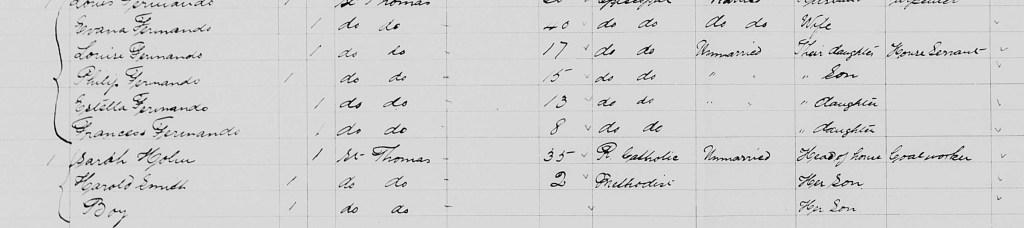 Fernando 1 St Thomas Episcopal
Evana Fernando do do - 40 do do do do Wife
Louise Fernando 1 do do - 17 do do Unmarried Their daughter House Servant
Philip Fernando 1 do do - 15 do do " " " Son
Estella Fernando 1 do do - 13 do do " " " daughter
Frances Fernando 1 do do - 8 do do " daughter
1 Sarah 1 St Thomas - 35 R. Catholic Unmarried Head of house Coal worker
Harold Smith 1 do do - 2 Methodist Her Son
Boy 1 do do - Her Son